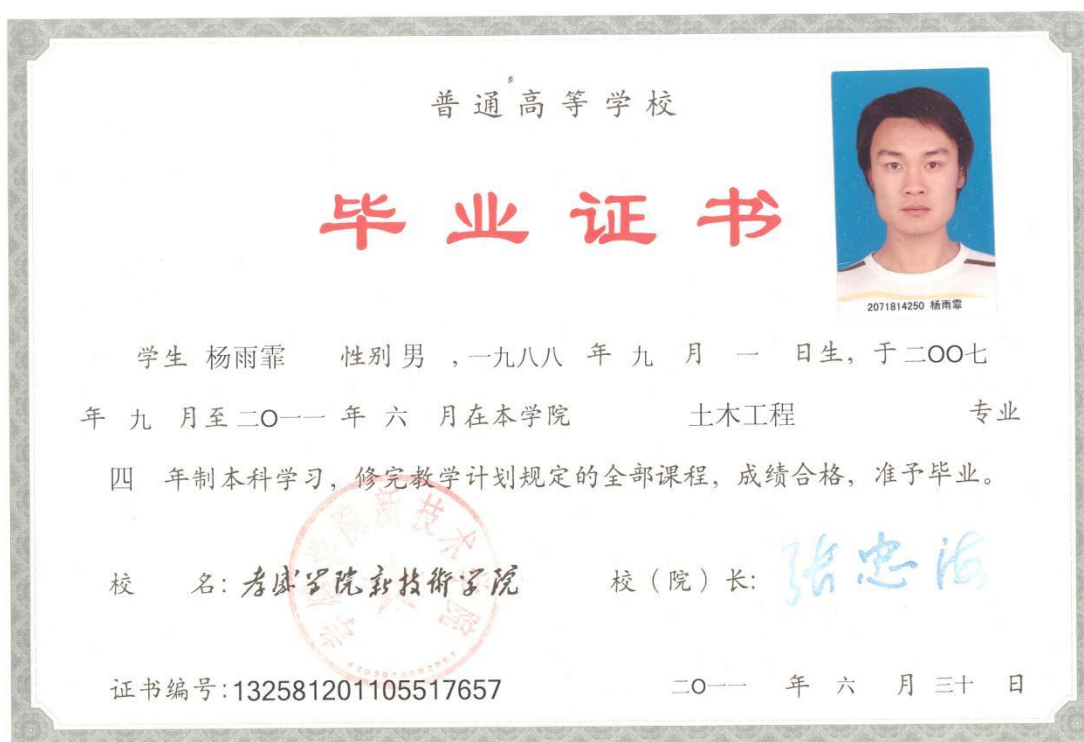 普通高等学校
毕业证书
2071814250 杨雨霏
学生 杨雨霏 性别 男 ,一九八八 年 九 月 一 日生, 于二OO七
年 九 月至二O一一 年 六 月在本学院 土木工程 专业
四 年制本科学习, 修完教学计划规定的全部课程, 成绩合格, 准予毕业。
校 名: 孝感学院新技術学院 校（院）长: 张忠海
孝感学院新技术学院
证书编号:132581201105517657 二O一一 年 六 月 三十 日